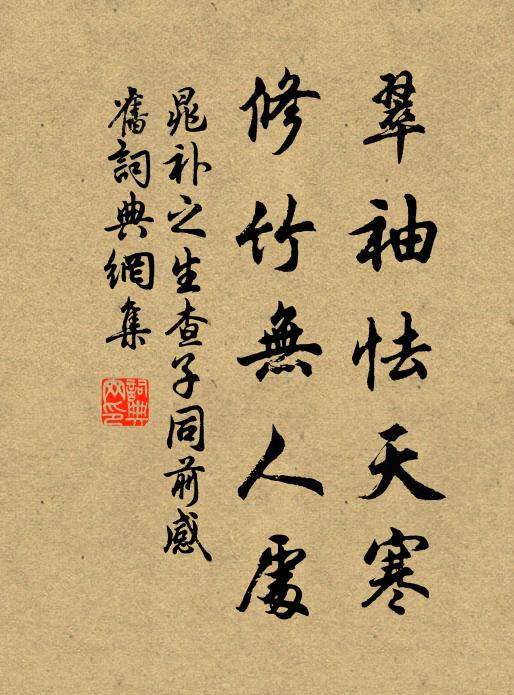 翠袖怯天寒
修竹無人處
晁补之生查子同前感
舊詞典網集
詞典網印